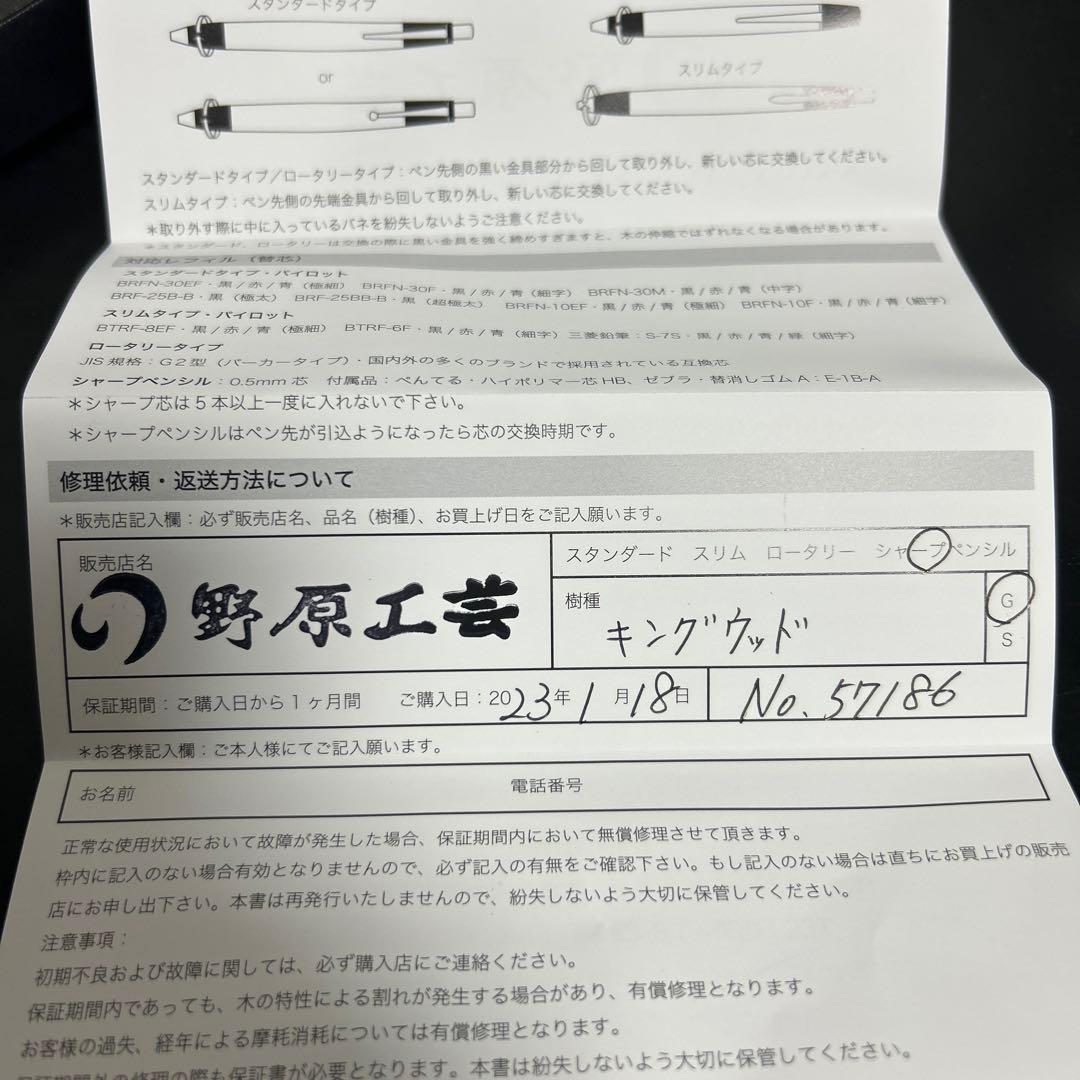 スタンダードタイプ
or
スリムタイプ
スタンダードタイプ/ロータリータイプ:ペン先側の黒い金具部分から回して取り外し、新しい芯に交換してください。
スリムタイプ:ペン先側の先端金具から回して取り外し、新しい芯に交換してください。
*取り外す際に中に入っているバネを紛失しないようご注意ください。
*スタンダード、ロータリーは交換の際に黒い金具を強く締めすぎますと、木の伸縮ではずれなくなる場合があります。
対応レフィル(替芯)
スタンダードタイプ・パイロット
BRFN-30EF・黒/赤/青(極細) BRFN-30F・黒/赤/青(細字) BRFN-30M・黒/赤/青(中字)
BRF-25B-B・黒(極太) BRF-25BB-B・黒(超極太) BRFN-10EF・黒/赤/青(極細) BRFN-10F・黒/赤/青(細字)
スリムタイプ・パイロット
BTRF-8EF・黒/赤/青(極細) BTRF-6F・黒/赤/青(細字)三菱鉛筆:S-7S・黒/赤/青/緑(細字)
ロータリータイプ
JIS規格:G2型(パーカータイプ)・国内外の多くのブランドで採用されている互換芯
シャープペンシル:0.5mm芯 付属品:ぺんてる・ハイポリマー芯HB、ゼブラ・替消しゴムA:E-1B-A
*シャープ芯は5本以上一度に入れないで下さい。
*シャープペンシルはペン先が引込ようになったら芯の交換時期です。
修理依頼・返送方法について
*販売店記入欄:必ず販売店名、品名(樹種)、お買上げ日をご記入願います。
販売店名
野原工芸
スタンダード スリム ロータリー シャープペンシル
樹種
キングウッド
G
S
保証期間:ご購入日から1ヶ月間 ご購入日:2023年1月18日
No.57186
*お客様記入欄:ご本人様にてご記入願います。
お名前 電話番号
正常な使用状況において故障が発生した場合、保証期間内において無償修理させて頂きます。
枠内に記入のない場合有効となりませんので、必ず記入の有無をご確認下さい。もし記入のない場合は直ちにお買上げの販売
店にお申し出下さい。本書は再発行いたしませんので、紛失しないよう大切に保管してください。
注意事項:
初期不良および故障に関しては、必ず購入店にご連絡ください。
保証期間内であっても、木の特性による割れが発生する場合があり、有償修理となります。
お客様の過失、経年による摩耗消耗については有償修理となります。
保証期間外の修理の際も保証書が必要となります。本書は紛失しないよう大切に保管してください。